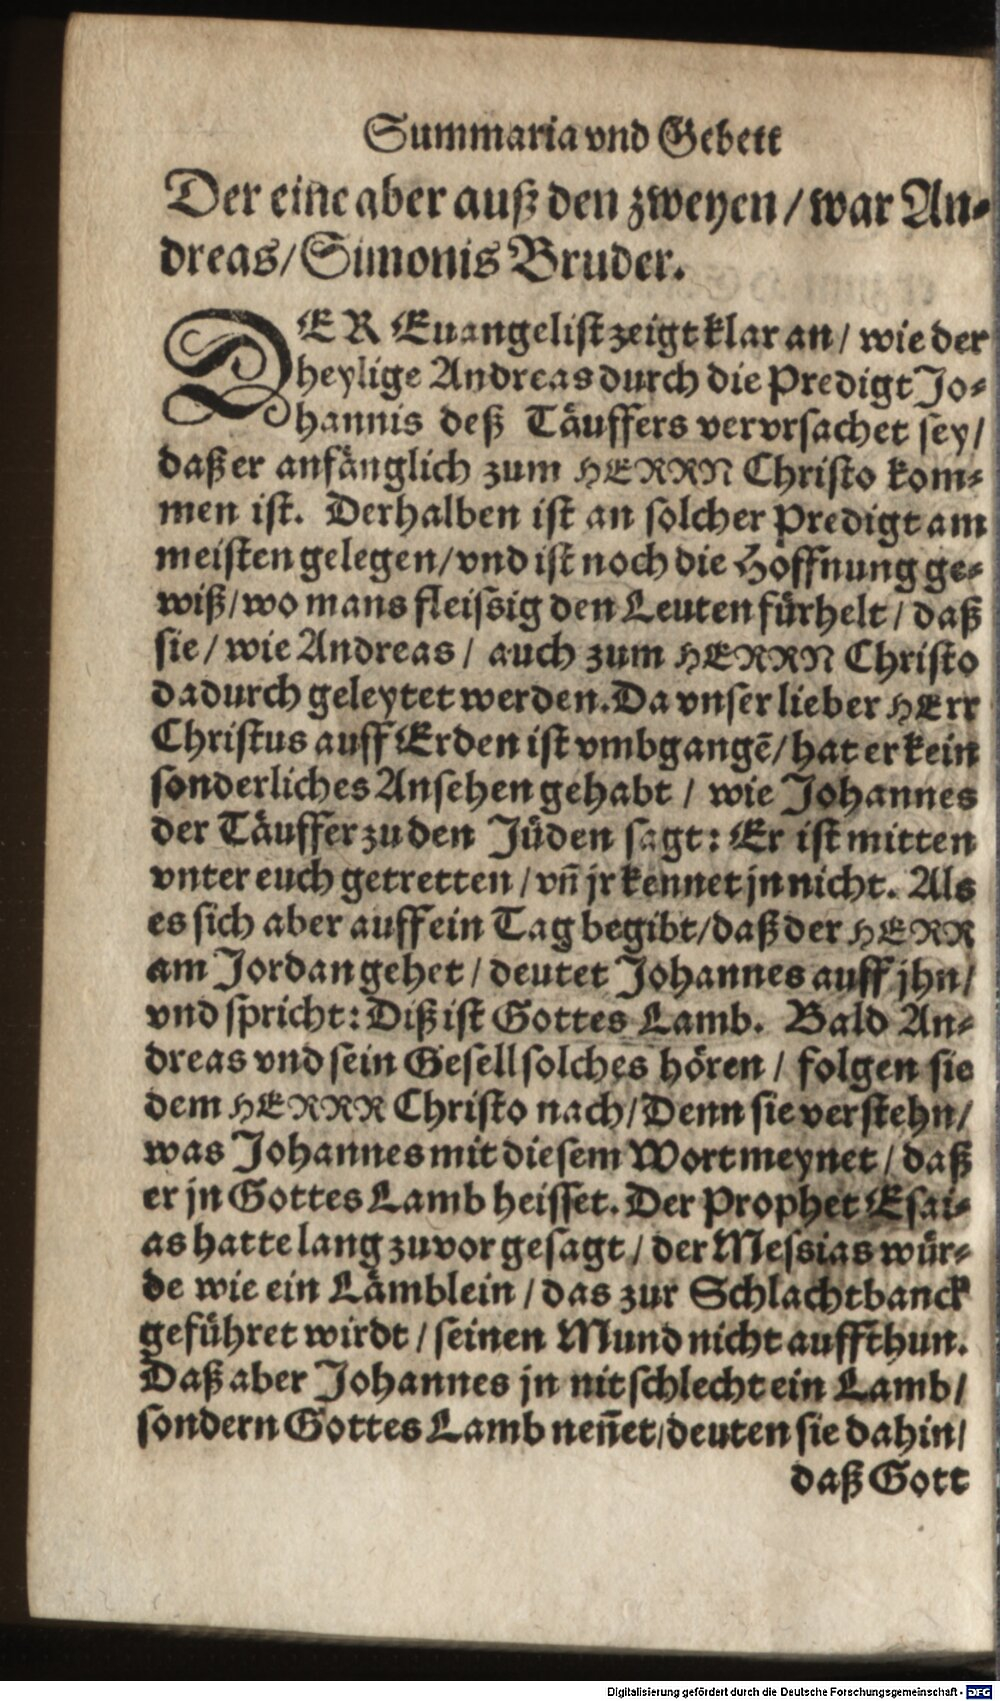 Summaria vnd Gebett
Der eine aber auß den zweyen / war An-
dreas / Simonis Bruder.
DER Euangelist zeigt klar an / wie der
heylige Andreas durch die Predigt Jo-
hannis deß Täuffers vervrsachet sey /
daß er anfänglich zum HERRN Christo kom-
men ist. Derhalben ist an solcher Predigt am
meisten gelegen / vnd ist noch die Hoffnung ge-
wiß / wo mans fleissig den Leuten fürhelt / daß
sie / wie Andreas / auch zum HERRN Christo
dadurch geleytet werden. Da vnser lieber HErr
Christus auff Erden ist vmbgangē / hat er kein
sonderliches Ansehen gehabt / wie Johannes
der Täuffer zu den Jüden sagt: Er ist mitten
vnter euch getretten / vn̄ jr kennet jn nicht. Als
es sich aber auff ein Tag begibt / daß der HERR
am Jordan gehet / deutet Johannes auff jhn /
vnd spricht: Diß ist Gottes Lamb. Bald An-
dreas vnd sein Gesell solches hören / folgen sie
dem HERRR Christo nach / Denn sie verstehn /
was Johannes mit diesem Wort meynet / daß
er jn Gottes Lamb heisset. Der Prophet Esai-
as hatte lang zuvor gesagt / der Messias wür-
de wie ein Lämblein / das zur Schlachtbanck
geführet wirdt / seinen Mund nicht auffthun.
Daß aber Johannes jn nit schlecht ein Lamb /
sondern Gottes Lamb nen̄et / deuten sie dahin /
daß Gott
Digitalisierung gefördert durch die Deutsche Forschungsgemeinschaft - DFG